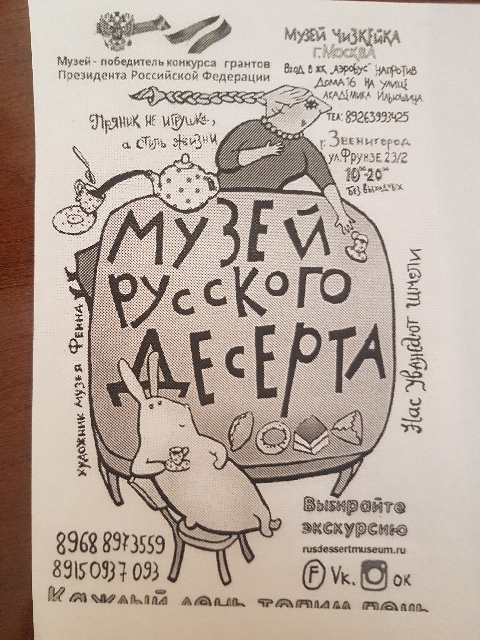 Музей - победитель конкурса грантов
Президента Российской Федерации
МУЗЕЙ ЧИЗКЕЙКА
Г.МОСКВА
ВХОД В ЖК „АЭРОБУС" НАПРОТИВ
ДОМА 16 НА УЛИЦЕ
АКАДЕМИКА ИЛЬЮШИНА
ТЕЛ: 89263993425
Пряник не игрушка,
а стиль жизни
г. Звенигород
ул. Фрунзе 23/2
10⁰⁰-20⁰⁰
БЕЗ ВЫХОДНЫХ
МУЗЕЙ
РУССКОГО
ДЕСЕРТА
ХУДОЖНИК МУЗЕЯ ФЕККЛА
Нас Уважают Шмели
Выбирайте
экскурсию
rusdessertmuseum.ru
F Vk. ОК
8968 8973559
8915 0937 093
Каждый день топим печь